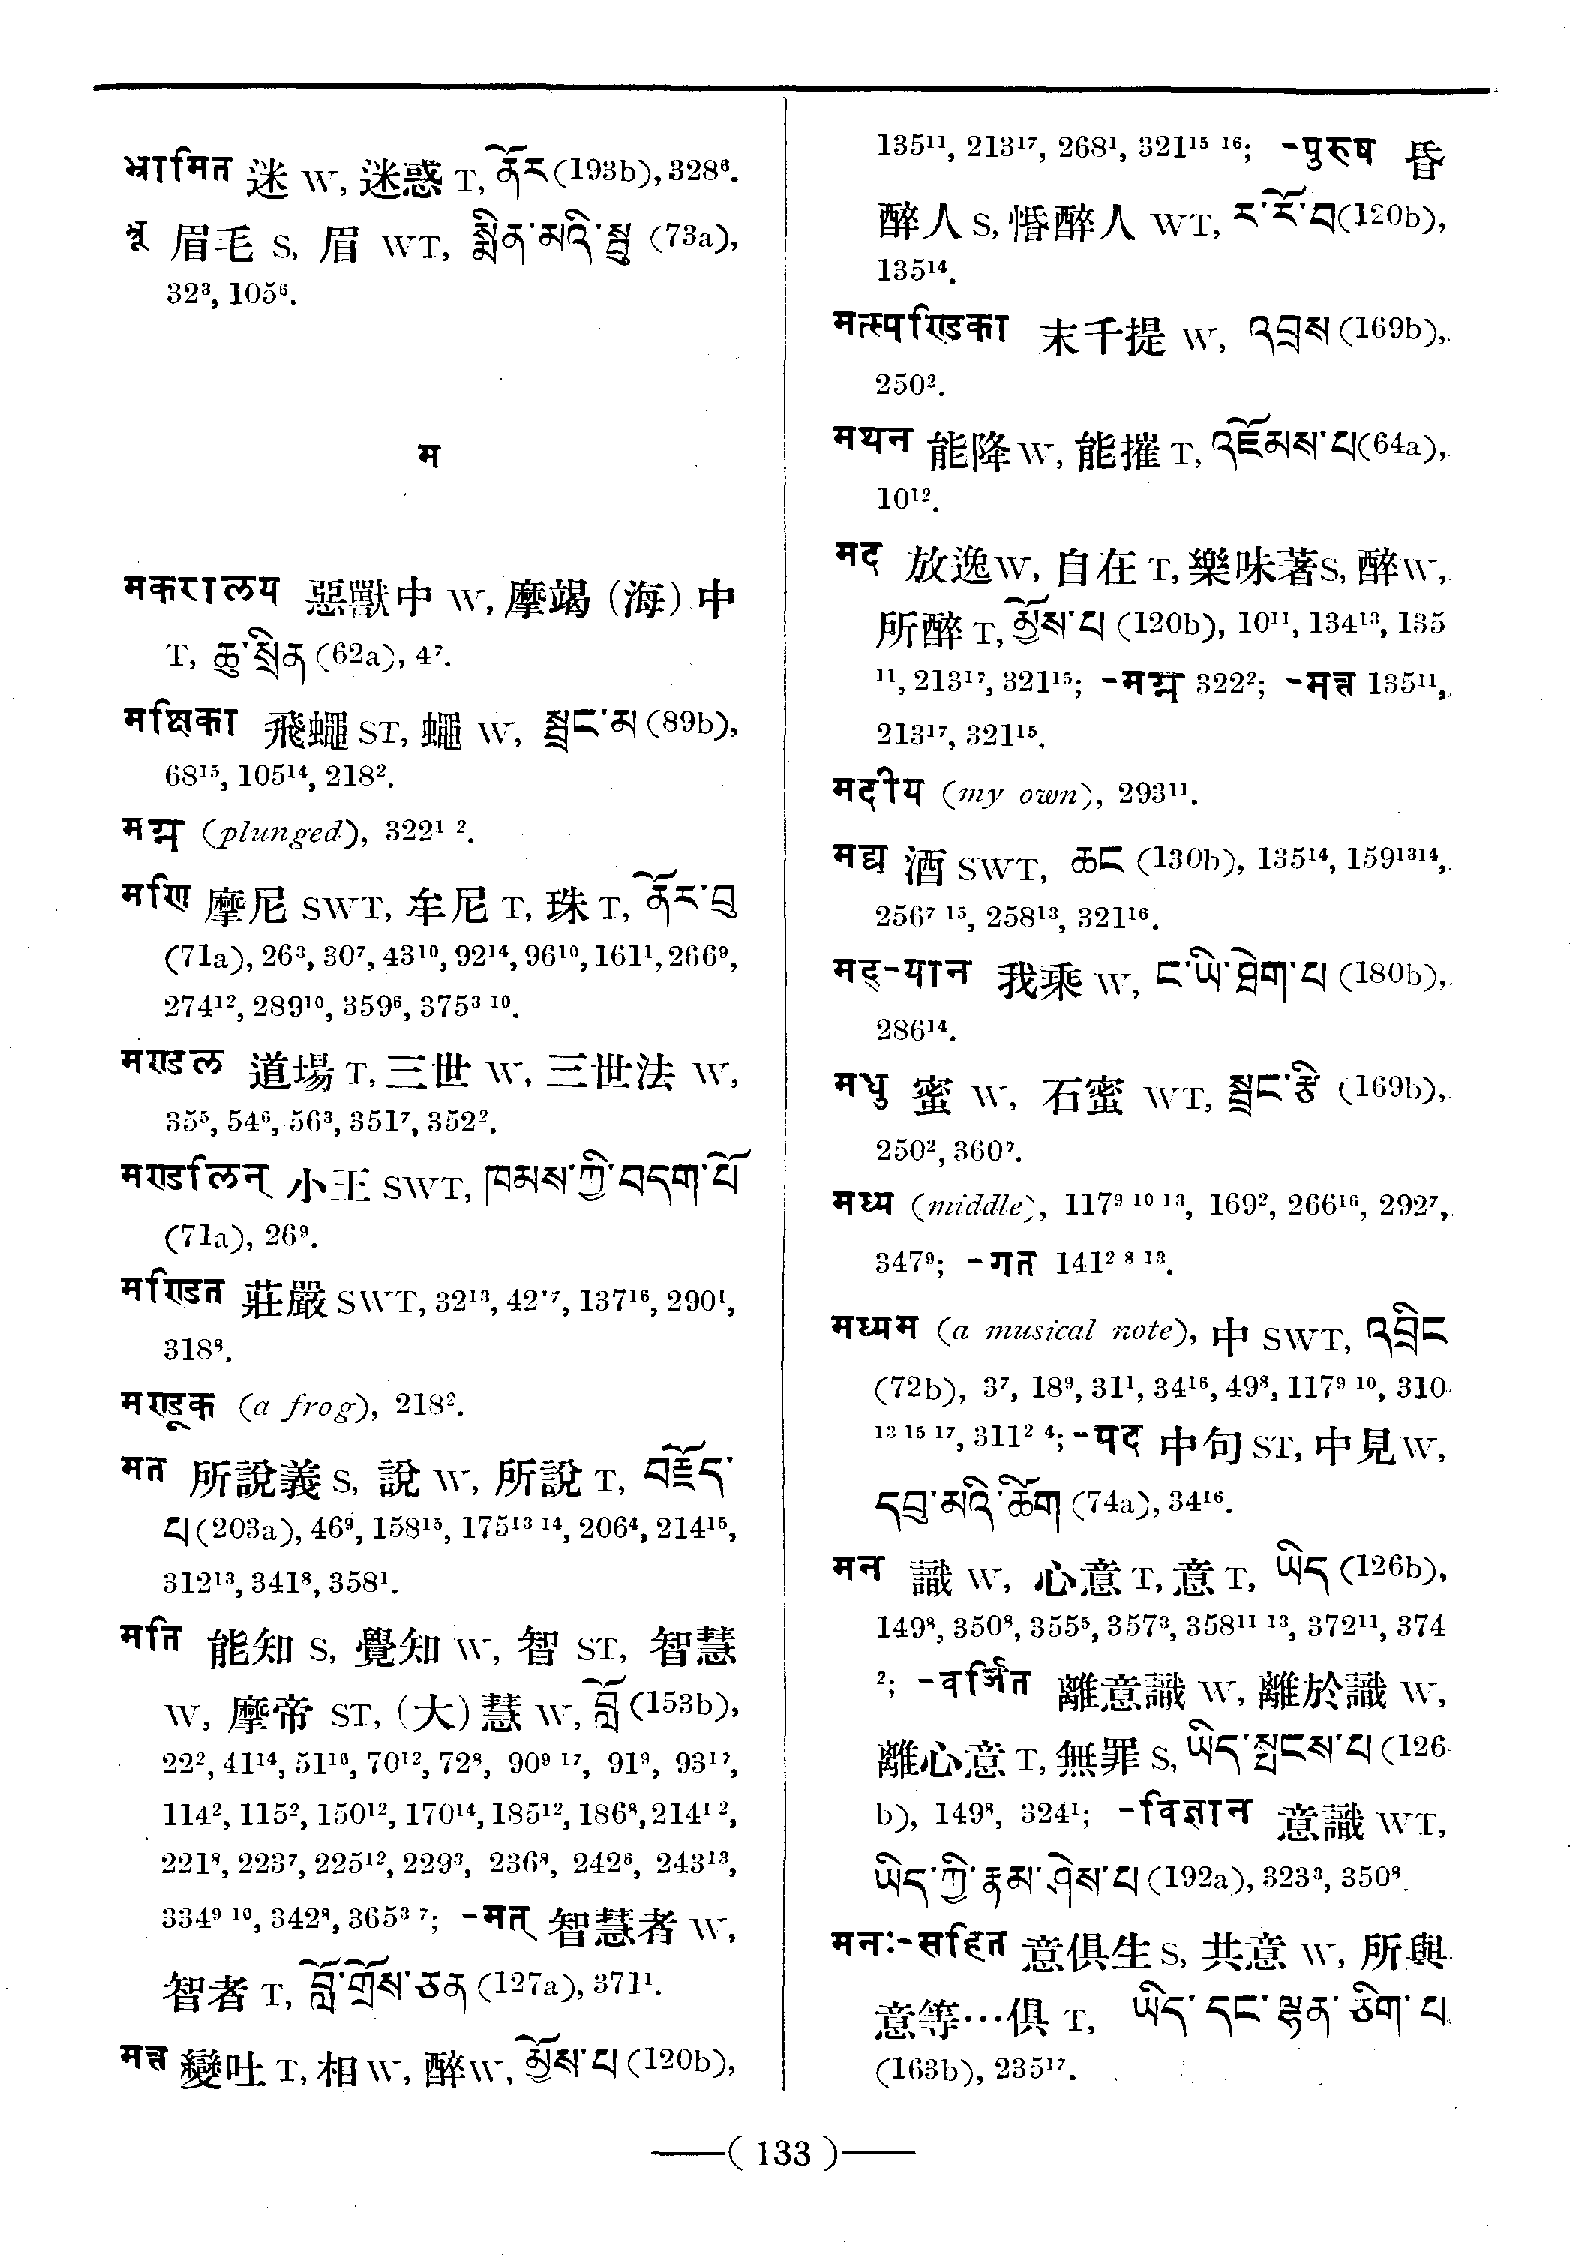 भ्रामित 迷 W, 迷惑 T, ནོར (193b), 328⁶.
भ्रू 眉毛 S, 眉 WT, སྨིན་མའི་སྤུ (73a),
32³, 105⁶.
म
मकरालय 惡獸中 W, 摩竭 (海) 中
T, ཆུ་སྲིན (62a), 4⁷.
मक्षिका 飛蠅 ST, 蠅 W, སྦྲང་མ (89b),
68¹⁵, 105¹⁴, 218².
मग्न (plunged), 322¹ ².
मणि 摩尼 SWT, 牟尼 T, 珠 T, ནོར་བུ
(71a), 26³, 30⁷, 43¹⁰, 92¹⁴, 96¹⁰, 161¹, 266⁹,
274¹², 289¹⁰, 359⁶, 375³ ¹⁰.
मण्डल 道場 T, 三世 W, 三世法 W,
35⁵, 54⁶, 56³, 351⁷, 352².
मण्डलिन् 小王 SWT, ཁམས་ཀྱི་བདག་པོ
(71a), 26⁹.
मण्डित 莊嚴 SWT, 32¹³, 42, 137¹⁶, 290¹,
318⁸.
मण्डूक (a frog), 218².
मत 所說義 S, 說 W, 所說 T, བརྗོད་
པ (203a), 46⁹, 158¹⁵, 175¹³ ¹⁴, 206⁴, 214¹⁵,
312¹³, 341⁸, 358¹.
मति 能知 S, 覺知 W, 智 ST, 智慧
W, 摩帝 ST, (大) 慧 W, བློ (153b),
22², 41¹⁴, 51¹⁶, 70¹², 72⁸, 90⁹ ¹⁷, 91⁹, 93¹⁷,
114², 115², 150¹², 170¹⁴, 185¹², 186⁸, 214¹ ²,
221⁸, 223⁷, 225¹², 229³, 236⁸, 242⁶, 243¹³,
334⁹ ¹⁰, 342⁸, 365³ ⁷; -मत् 智慧者 W,
智者 T, བློ་གྲོས་ཅན (127a), 371¹.
मत्त 變吐 T, 相 W, 醉 W, མྱོས་པ (120b),
135¹¹, 213¹⁷, 268¹, 321¹⁵ ¹⁶; -पुरुष 昏
醉人 S, 惛醉人 WT, ར་རོ་བ (120b),
135¹⁴.
मत्स्पण्डिका 末千提 W, འབྲས (169b),
250².
मथन 能降 W, 能摧 T, འཇོམས་པ (64a),
10¹².
मद 放逸 W, 自在 T, 樂味著 S, 醉 W,
所醉 T, མྱོས་པ (120b), 10¹¹, 134¹³, 135
¹¹, 213¹⁷, 321¹⁵; -मग्न 322²; -मत्त 135¹¹,
213¹⁷, 321¹⁵.
मदीय (my own), 293¹¹.
मद्य 酒 SWT, ཆང (130b), 135¹⁴, 159¹³¹⁴,
256⁷ ¹⁵, 258¹³, 321¹⁶.
मद्-यान 我乘 W, ང་ཡི་ཐེག་པ (180b),
286¹⁴.
मधु 蜜 W, 石蜜 WT, སྦྲང་རྩི (169b),
250², 360⁷.
मध्य (middle), 117⁹ ¹⁰ ¹³, 169², 266¹⁶, 292⁷,
347⁹; -गत 141² ⁸ ¹³.
मध्यम (a musical note), 中 SWT, འབྲིང
(72b), 3⁷, 18⁹, 31¹, 34¹⁶, 49⁸, 117⁹ ¹⁰, 310
¹³ ¹⁵ ¹⁷, 311² ⁴; -पद 中句 ST, 中見 W,
དབུ་མའི་ཚིག (74a), 34¹⁶.
मन 識 W, 心意 T, 意 T, ཡིད (126b),
149⁸, 350⁸, 355⁵, 357³, 358¹¹ ¹³, 372¹¹, 374
²; -वर्जित 離意識 W, 離於識 W,
離心意 T, 無罪 S, ཡིད་སྤངས་པ (126
b), 149⁸, 324¹; -विज्ञान 意識 WT,
ཡིད་ཀྱི་རྣམ་ཤེས་པ (192a), 323³, 350⁸.
मनः-सहित 意俱生 S, 共意 W, 所與
意等⋯俱 T, ཡིད་དང་ལྷན་ཅིག་པ
(163b), 235¹⁷.
——( 133 )——